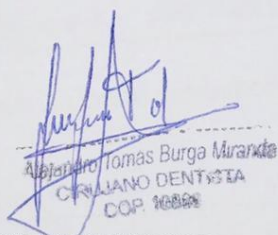 Alejandro Tomas Burga Miranda
CIRUJANO DENTISTA
COP.